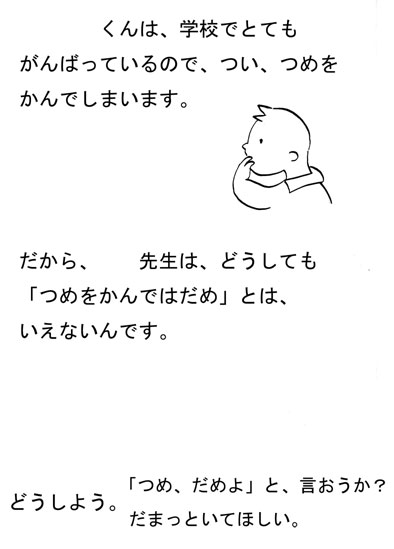 くんは、学校でとても
がんばっているので、つい、つめを
かんでしまいます。
だから、　　先生は、どうしても
「つめをかんではだめ」とは、
いえないんです。
どうしよう。
「つめ、だめよ」と、言おうか？
だまっといてほしい。